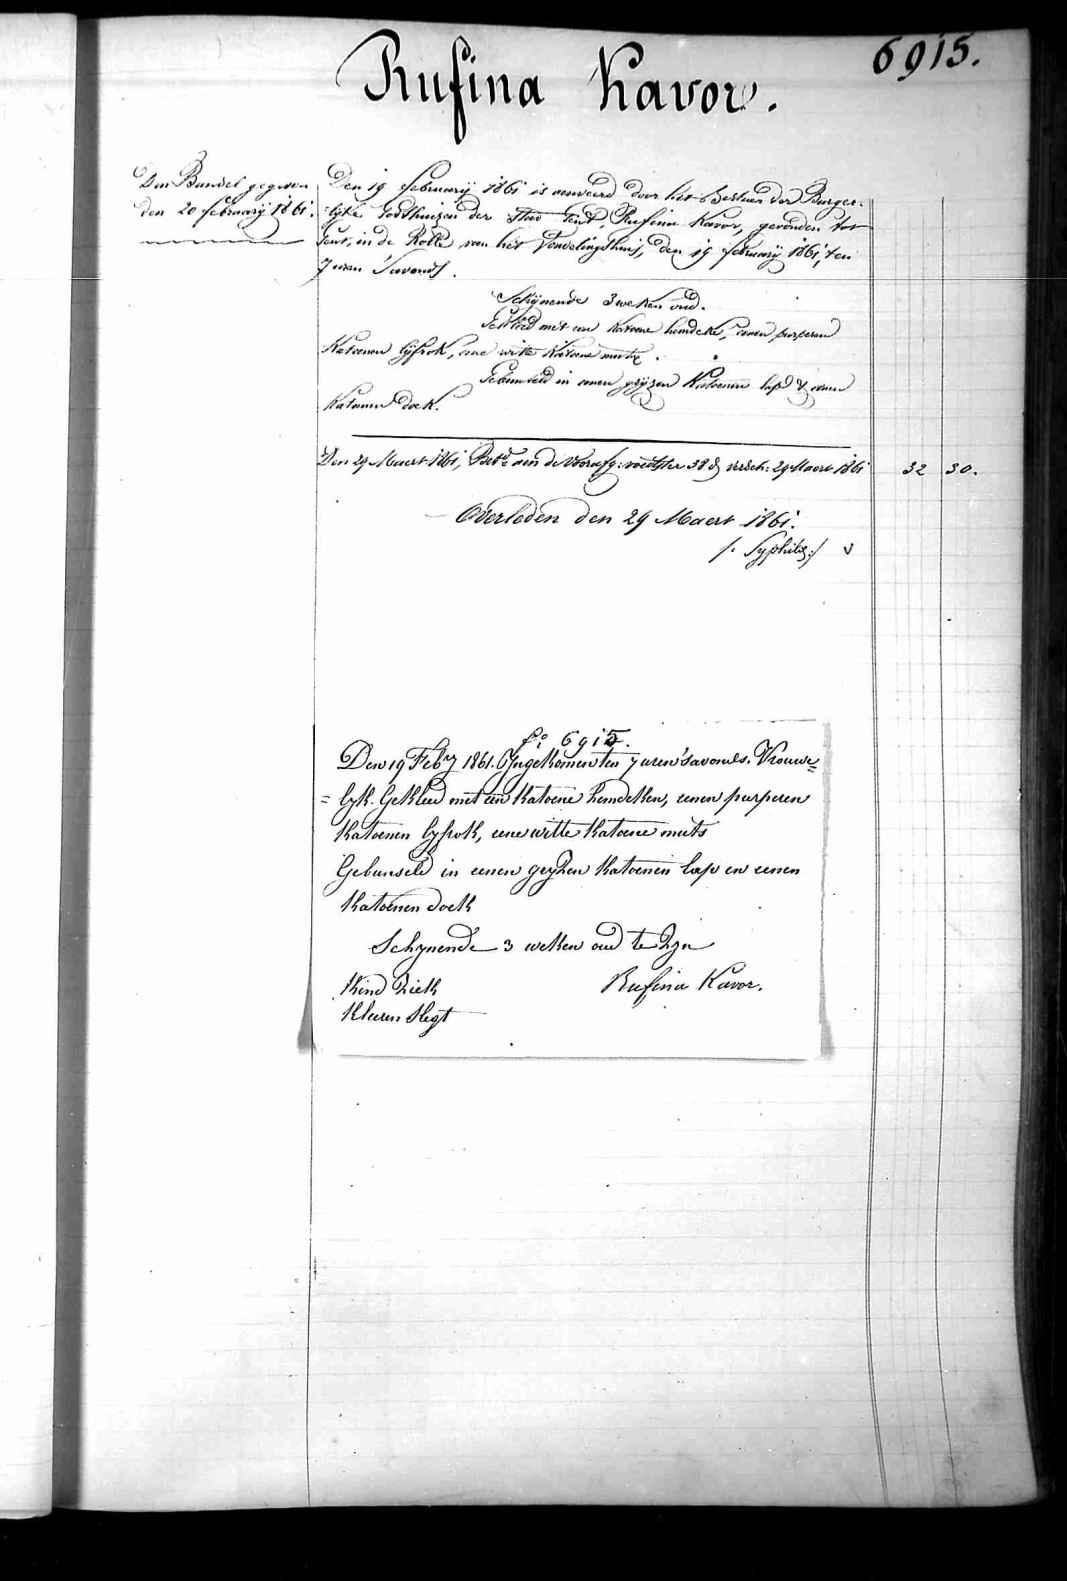 6915.
Rufina Kavor.
Den Bundel gegeven
den 20 february 1861.
Den 19 february 1861 is aenveerd door het Bestuer der Burger-
-lijke Godshuizen der Stad Gent Rufina Kavor, gevonden tot
Gent, in de Rolle van het Vondelingshuis, den 19 february 1861, ten
7 uren 's avonds.
Schijnende 3 weken oud.
Gekleed met een katoene hemdeke, eenen purperen
Katoenen lijfrok, eene witte katoene muts.
Gebunseld in eenen grijzen Katoenen lap & eenen
katoenen doek.
Den 29 Maert 1861, aen de voedster 38 d versch: 29 Maert 1861 32 30.
Overleden den 29 Maert 1861.
/: Syphilis :/
fo 6915.
Den 19 Feby 1861. Ingekomen ten 7 uren 's avonds. Vrouwe=
=lyk. Gekleed met een katoene hemdeken, eenen purperen
katoenen lyfrok, eene witte katoene muts
Gebunseld in eenen gryzen katoenen lap en eenen
katoenen doek
Schynende 3 weken oud te zyn
Kind Ziek Rufina Kavor.
Kleeren slegt